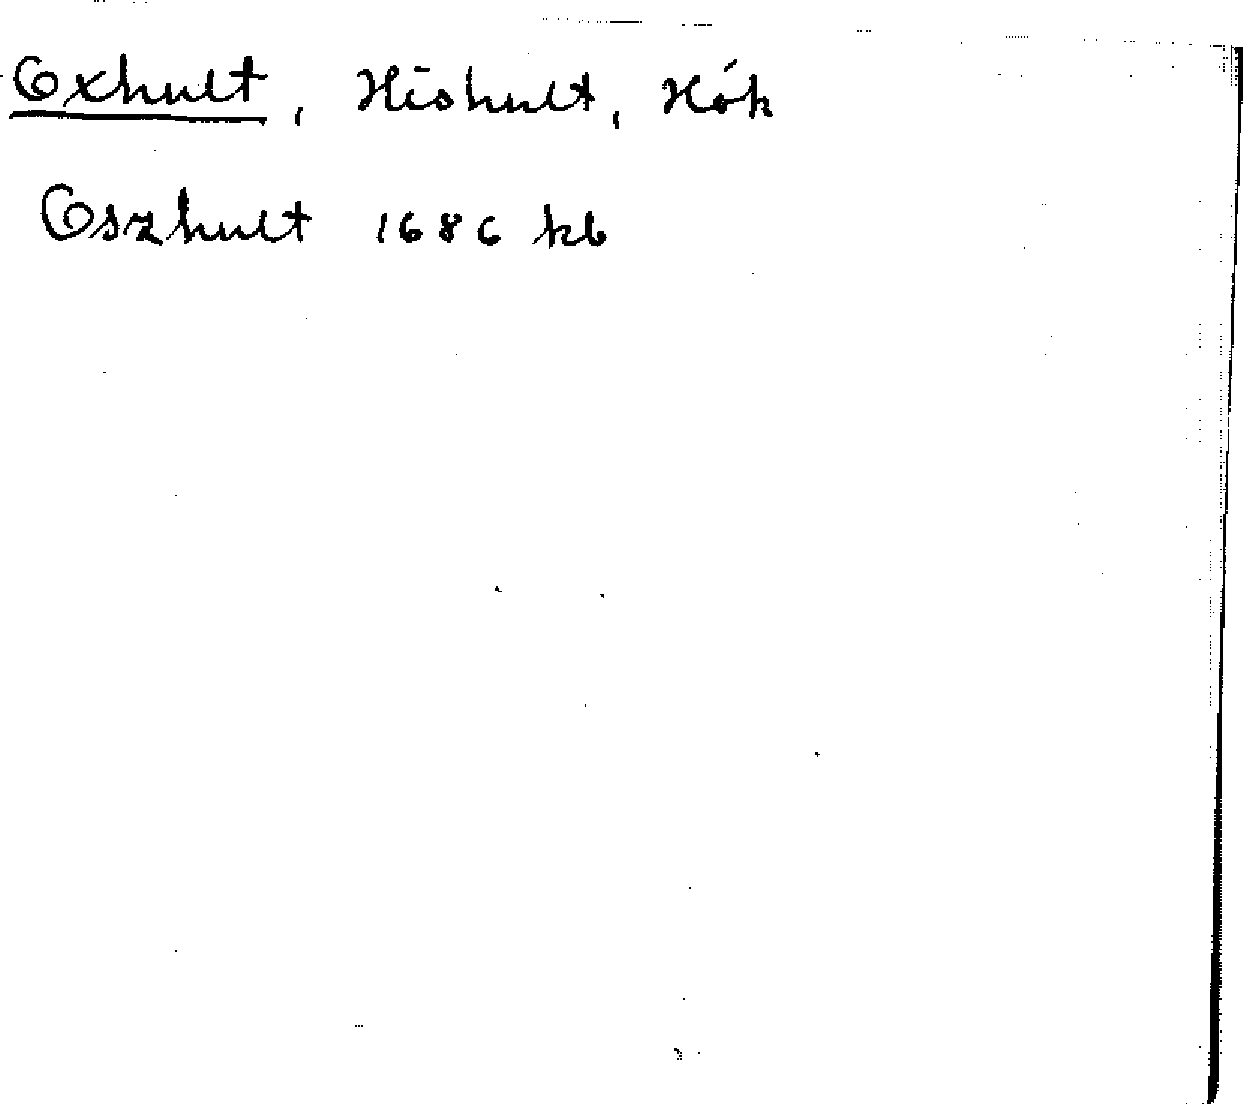 Oxhult, Hishult, Hök
Oszhult 1686 kb